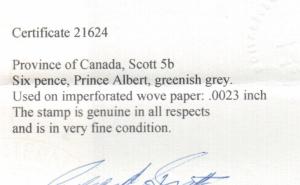 Certificate 21624
Province of Canada, Scott 5b
Six pence, Prince Albert, greenish grey.
Used on imperforated wove paper: .0023 inch
The stamp is genuine in all respects
and is in very fine condition.